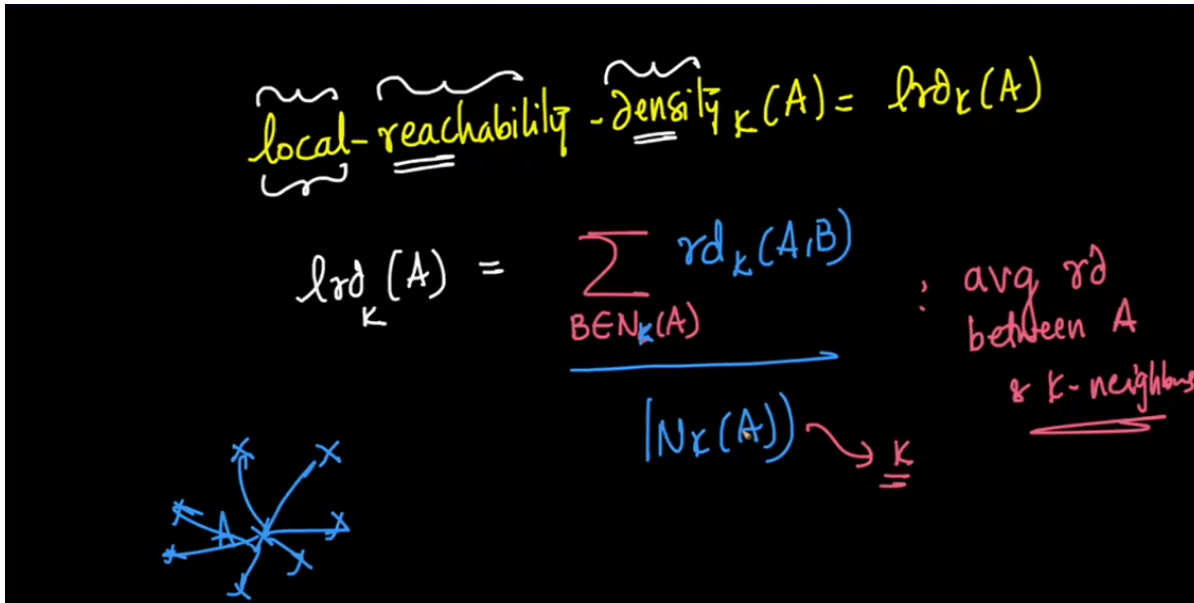 local-reachability-density K (A) = lrd K (A)
lrd K (A) = Σ B∈N K (A) rd K (A,B)
|N K (A)| → K
: avg rd
between A
& K-neighbours
A